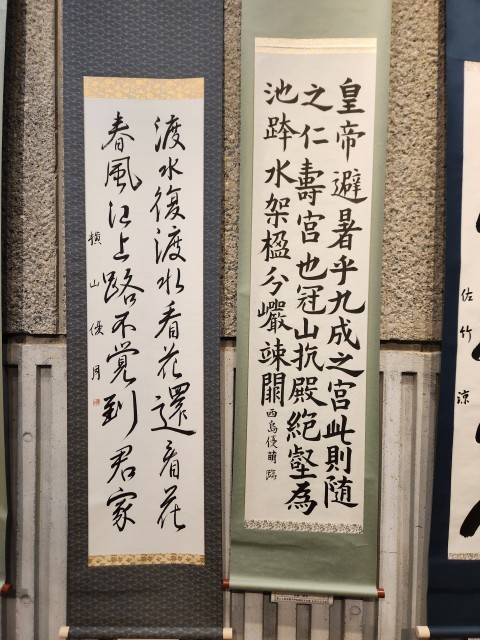 佐竹涼
皇帝避暑乎九成之宮此則随
之仁壽宮也冠山抗殿絶壑為
池跨水架楹分巖竦闕
西島優萌臨
渡水復渡水看花還看花
春風江上路不覚到君家
横山優月